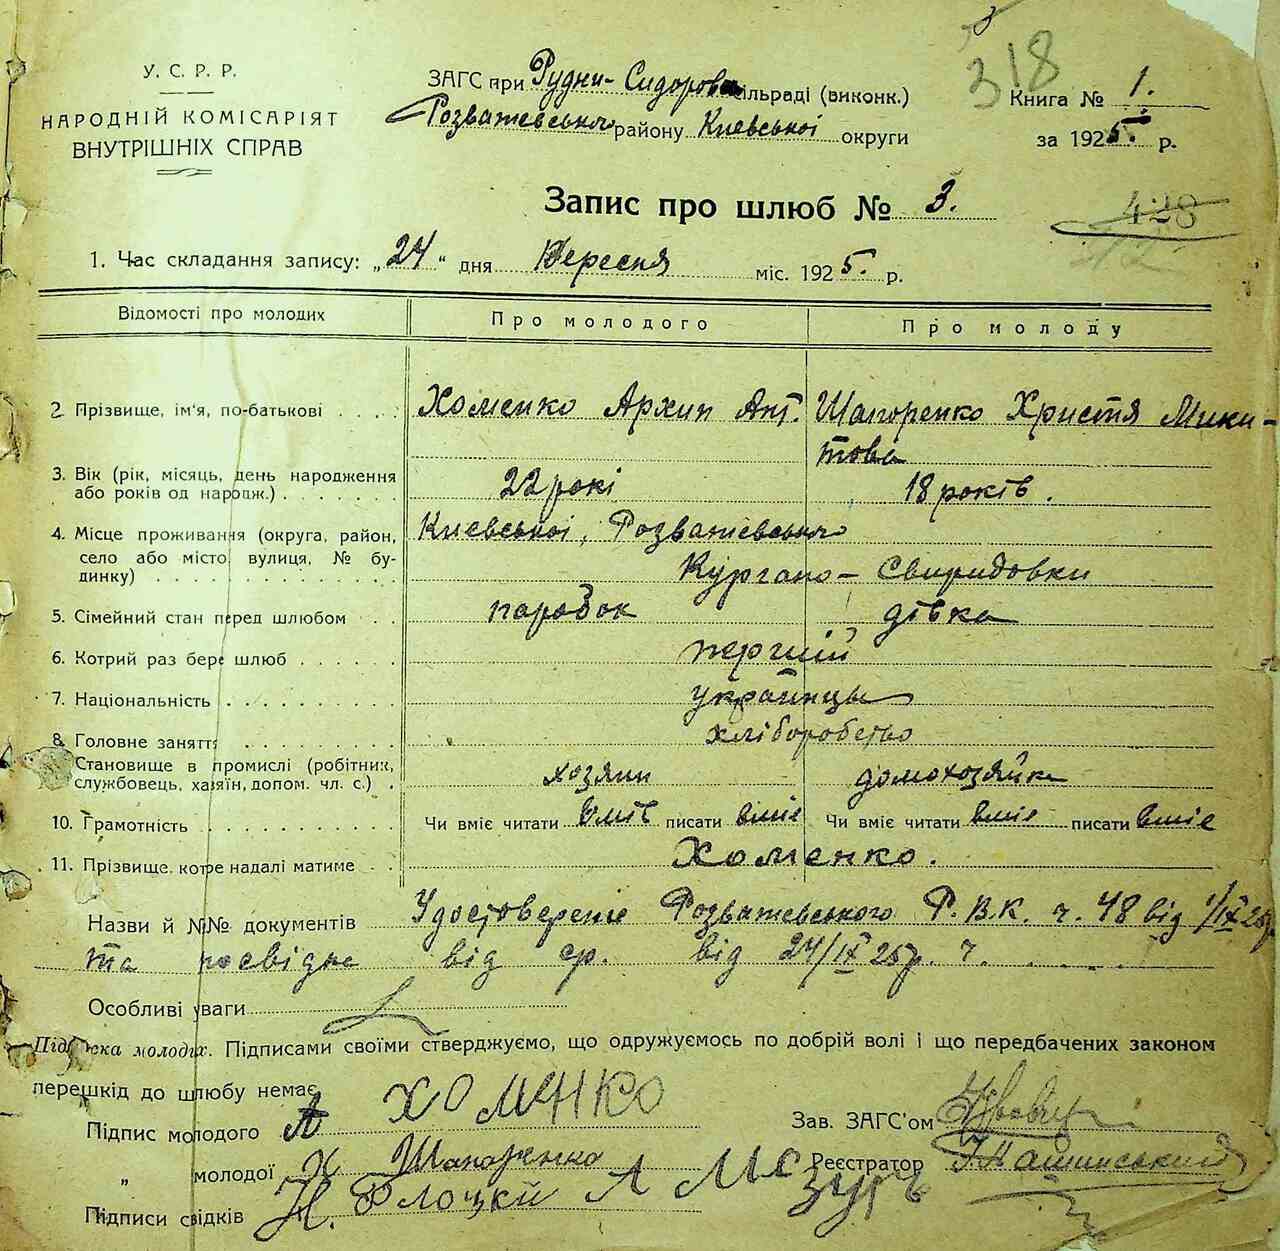 318
У. С. Р. Р.
НАРОДНІЙ КОМІСАРІЯТ
ВНУТРІШНІХ СПРАВ
ЗАГС при Рудни-Сидоровс сільраді (виконк.)
Розважевського району Киевської округи
Книга № 1.
за 1925. р.
Запис про шлюб № 3.
428
1. Час складання запису: „24“ дня Вересня міс. 1925. р.
Відомості про молодих Про молодого Про молоду
2. Прізвище, ім'я, по-батькові Хоменко Архип Ант. Шапоренко Христя Мики-
това
3. Вік (рік, місяць, день народження
або років од народж.) 22 рокі 18 років.
4. Місце проживання (округа, район,
село або місто вулиця, № бу-
динку)
Киевської, Розважевського
Кургано-Свиридовки
5. Сімейний стан перед шлюбом паробок дівка
6. Котрий раз бере шлюб перший
7. Національність українцы
8. Головне заняття хліборобство
Становище в промислі (робітник,
службовець, хазяїн, допом. чл. с.) хозяин домохозяйка
10. Грамотність Чи вміє читати вміє писати вміе Чи вміє читати вміе писати вміе
11. Прізвище, котре надалі матиме Хоменко.
Назви й №№ документів Удостоверение Розважевського Р.В.К. ч. 48 від 1/IX 25р
та посвідка від ср. від 24/IX 25р. ч.
Особливі уваги
Підписка молодих. Підписами своїми стверджуємо, що одружуємось по добрій волі і що передбачених законом
перешкід до шлюбу немає
Підпис молодого А ХОМЕНКО
Зав. ЗАГС'ом
„ молодої Х Шапаренко
Реєстратор
Підписи свідків Н. Флоцкй А Мазуръ